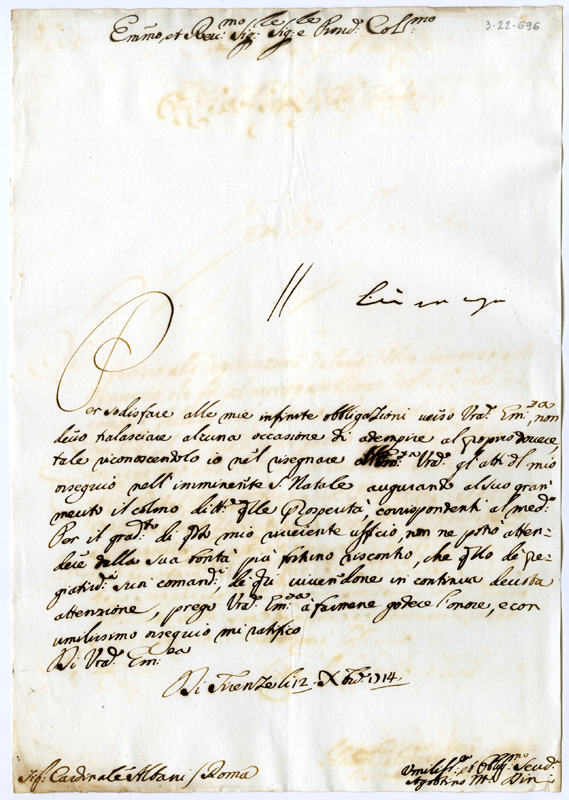 3-22-696
Em̃o, et Reu:mo Sig:le Sig:le e Prod: Col:mo
Per sodisfare alle mie infinite obbligazioni verso Vra: Em:za, non
devo tralasciare alcuna occasione di adempire al proprio dovere,
tale riconoscendolo io nel rasegnare all'Em:za Vra: gl'atti del mio
ossequio nell'imminente S: Natale augurando al suo gran
merito il colmo di tt:e q̃lle Prosperità, corrispondenti al med:o
Per il grad:to di q̃sto mio riverente ufficio, non ne potrò atten-
dere dalla sua bontà più riscontro, che q̃llo de pre-
giatis:i suoi comand:i, de q̃li vivendone in continua devota
attenzione, prego Vra: Em:za à farmene godere l'onore, e con
umilissimo ossequio mi ratifico
Di Vra: Em:za
Di Firenze li 12. Xbre: 1714.
Sig: Cardinale Albani / Roma
Umiliss:o et Obblig:mo Serv:e
Agostino M:a